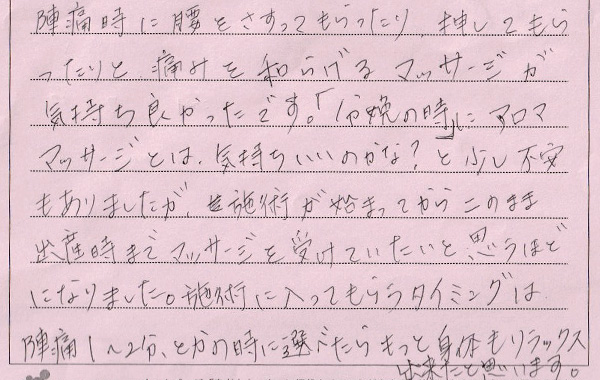 陣痛時に腰をさすってもらったり、押してもら
ったりと痛みを和らげるマッサージが
気持ち良かったです。「分娩の時」にアロマ
マッサージとは、気持ちいいのかな?と少し不安
もありましたが、施術が始まってからこのまま
出産時までマッサージを受けていたいと思うほど
になりました。施術に入ってもらうタイミングは
陣痛1~2分、とかの時に選べたらもっと身体もリラックス
出来たと思います。